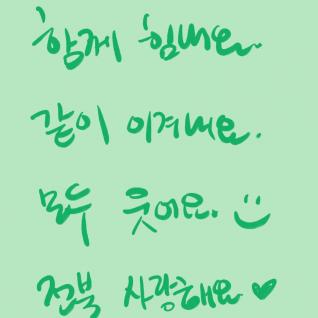 함께 힘내요.
같이 이겨내요.
모두 웃어요.
전부 사랑해요